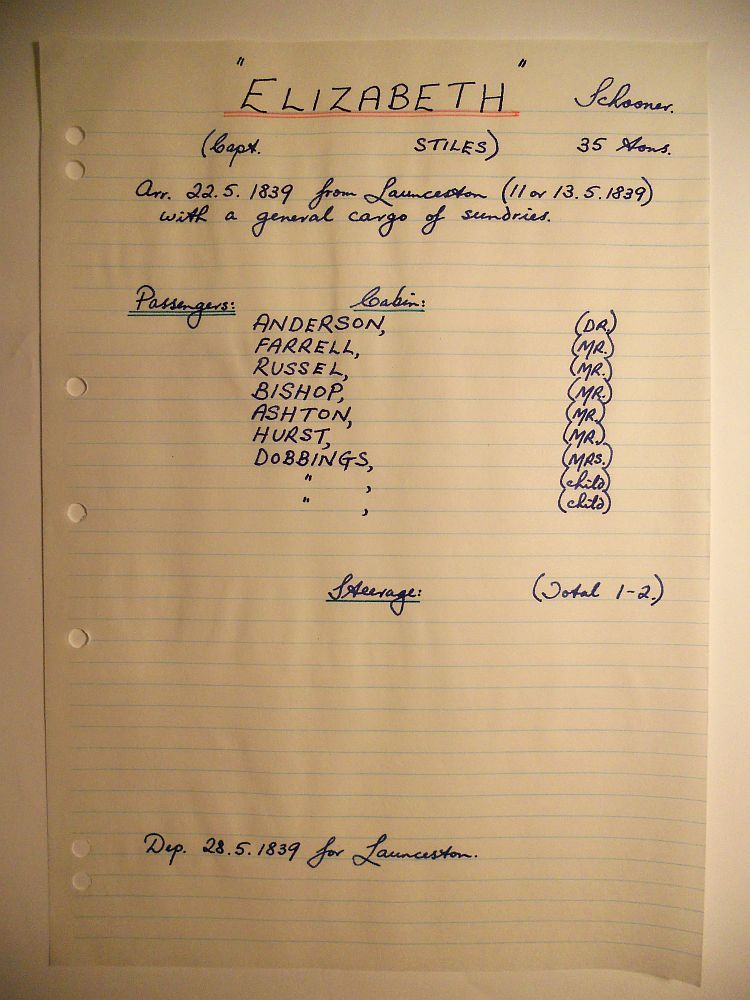 "ELIZABETH" Schooner.
(Capt. STILES) 35 tons.
Arr. 22.5.1839 from Launceston (11 or 13.5.1839)
with a general cargo of sundries.
Passengers: Cabin:
ANDERSON, (DR.)
FARRELL, (MR.)
RUSSEL, (MR.)
BISHOP, (MR.)
ASHTON, (MR.)
HURST, (MR.)
DOBBINGS, (MRS.)
" , (child)
" , (child)
Steerage: (Total 1-2.)
Dep. 28.5.1839 for Launceston.